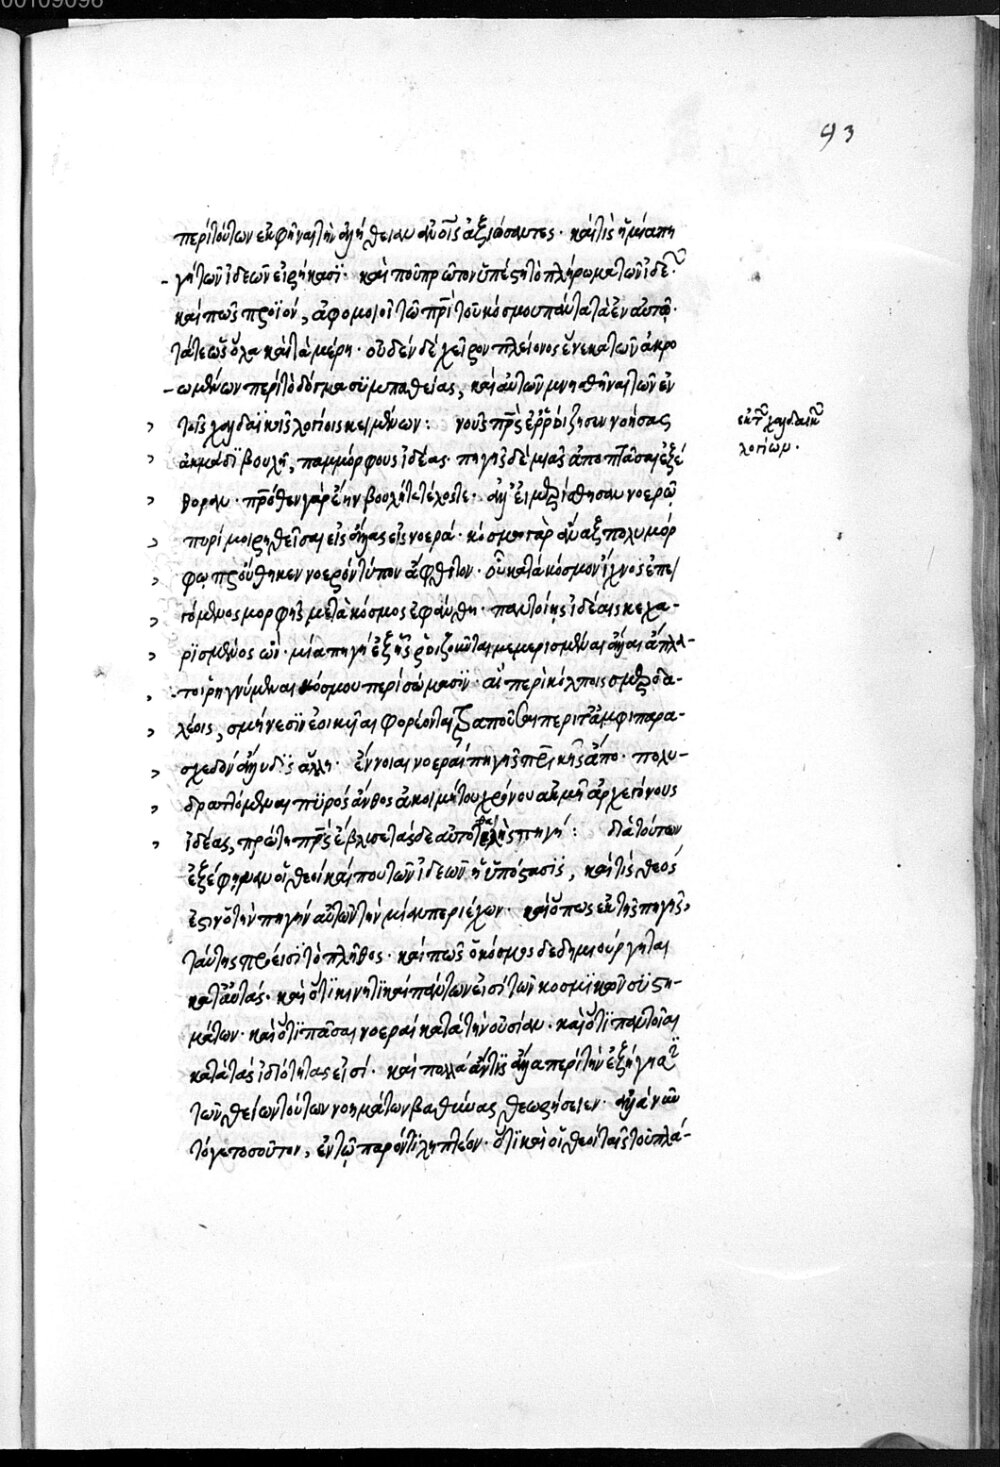 00109098
93
περὶ τούτων ἐκφῆναι τὴν ἀλήθειαν αὐτοῖς ἀξιώσαντες· καὶ τίς ἡ μία πη-
γὴ τῶν ἰδεῶν εἰρήκασϊ· καὶ ποῦ πρῶτον ὑπέστη τὸ πλήρωμα τῶν ἰδεῶν·
καὶ πῶς προϊόν, ἀφομοιοῖ τῶ πατρὶ τοῦ κόσμου πάντα τὰ ἐν αὐτῶ·
τά τε ὡς ὅλα καὶ τὰ μέρη· οὐδὲν δὲ χεῖρον πλείονος ἕνεκα τῶν ἀκρο-
ωμένων περὶ τὸ δόγμα συμπαθείας, καὶ αὐτῶν μνησθῆναι τῶν ἐν
τοῖς χαλδαϊκοῖς λογίοις κειμένων: νοῦς πατρὸς ἐρροίζησεν νοήσας
ἐκ τῶν χαλδαικῶν
λογίων.
ἀκμάδι βουλῆ, παμμόρφους ἰδέας· πηγῆς δὲ μιᾶς ἀπο πτᾶσαι ἐξέ-
θορον· πατρόθεν γὰρ ἔην βουλή τε τέλος τε· ἀλλ' ἐμερίσθησαν νοερῶ
πυρὶ μοιρηθεῖσαι εἰς ἄλλας εἰς νοεράς· κόσμω γὰρ ἄναξ πολυμόρ-
φω προύθηκεν νοερὸν τύπον ἄφθιτον· οὗ κατὰ κόσμον ἴχνος ἐπει-
γόμενος μορφῆς μετὰ κόσμος ἐφάνθη· παντοίης ἰδέαις κεχα-
ρισμένος ὧν· μία πηγὴ ἐξ ἧς ῥοιζοῦνται μεμερισμέναι ἄλλαι ἄπλα-
τοι ῥηγνύμεναι κόσμου περὶ σώμασϊν· αἳ περὶ κόλποις σμερδα-
λέοις, σμήνεσϊν ἐοικυῖαι φορέονται τράπουσαι περί τ' ἀμφι παρα-
σχεδὸν ἄλλυδις ἄλλη· ἔννοιαι νοεραὶ πηγῆς πατρικῆς ἄπο· πολυ-
δραττόμεναι πυρὸς ἄνθος ἀκοιμήτου χρόνου ἀκμῆ ἀρχεγόνους
ἰδέας, πρώτη πατρὸς ἔβλυσε τάσδε αὐτοτελὴς πηγή: διὰ τούτων
ἐξέφηναν οἱ θεοὶ καὶ που τῶν ἰδεῶν ἡ ὑπόστασϊς, καὶ τίς θεός
ἐστιν ὁ τὴν πηγὴν αὐτῶν τὴν μίαν περιέχων· καὶ ὅπως ἐκ τῆς πηγῆς,
ταύτης πρόεισϊ τὸ πλῆθος· καὶ πῶς ὁ κόσμος δεδημιούργηται
κατ' αὐτάς· καὶ ὅτι κινητικαὶ πάντων εἰσὶ τῶν κοσμϊκῶν συστη-
μάτων· καὶ ὅτι πᾶσαι νοεραὶ κατὰ τὴν οὐσίαν· καὶ ὅτι παντοῖαι
κατὰ τὰς ἰδιότητας εἰσί· καὶ πολλὰ ἄν τις ἄλλα περὶ τὴν ἐξήγησιν
τῶν θείων τούτων νοημάτων βαθείας θεωρήσειεν· ἀλλὰ νῦν
τό γε τοσοῦτον, ἐν τῶ παρόντι ληπτέον· ὅτι καὶ οἱ θεοὶ ταῖς τοῦ πλά-